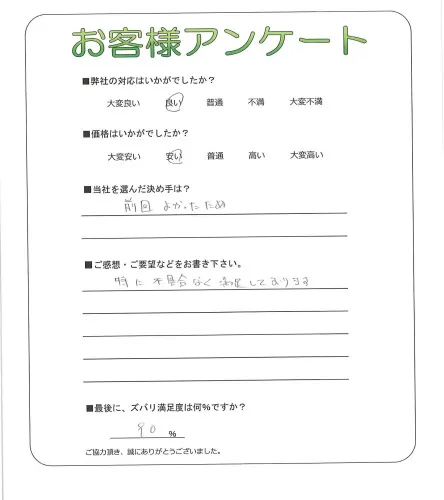 お客様アンケート
■弊社の対応はいかがでしたか？
大変良い 良い 普通 不満 大変不満
■価格はいかがでしたか？
大変安い 安い 普通 高い 大変高い
■当社を選んだ決め手は？
前回 よかったため
■ご感想・ご要望などをお書き下さい。
特に 不具合なく 満足しております
■最後に、ズバリ満足度は何％ですか？
90 ％
ご協力頂き、誠にありがとうございました。